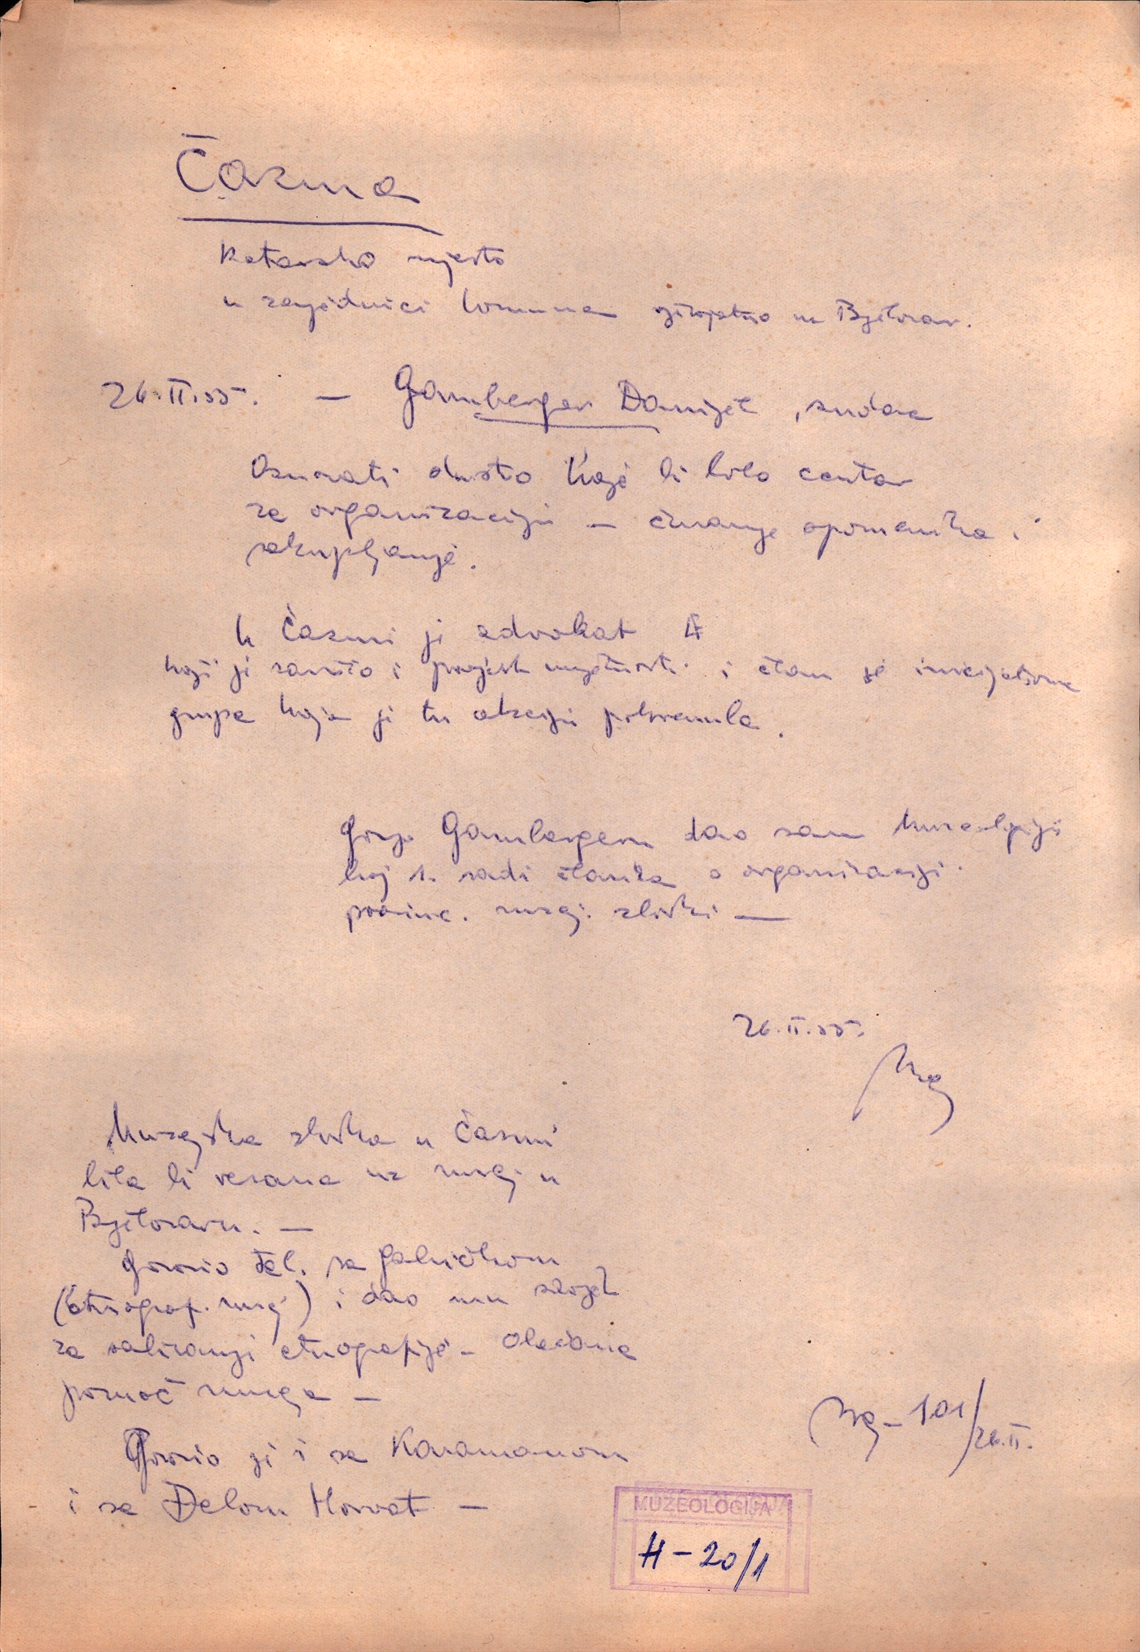 Čazma
Kotarsko mjesto
u zajednici komuna vjerojatno u Bjelovar.
26.II.55. — Gamberger Danijel, sudac
Osnovati društvo koje bi bilo centar
za organizaciju — čuvanje spomenika i
sakupljanje.
U Čazmi je advokat
koji je i povjesti umjetnosti i član je inicijativne
grupe koja je tu akciju pokrenula.
Gambergeru dao sam Muzeologiju
broj 1. radi članka o organizaciji
provinc. muzej. zbirki —
26.II.55.
Muzejska zbirka u Čazmi
bila bi vezana uz muzej u
Bjelovaru. —
Govorio tel. sa Gabričkom
(Etnograf. muzej) i dao mu savjet
za sabiranje etnografije — obećana
pomoć muzeja —
Govorio je i sa Karamanom
i sa Đelom Horvat —
101/26.II.
MUZEOLOGIJA
H-20/1